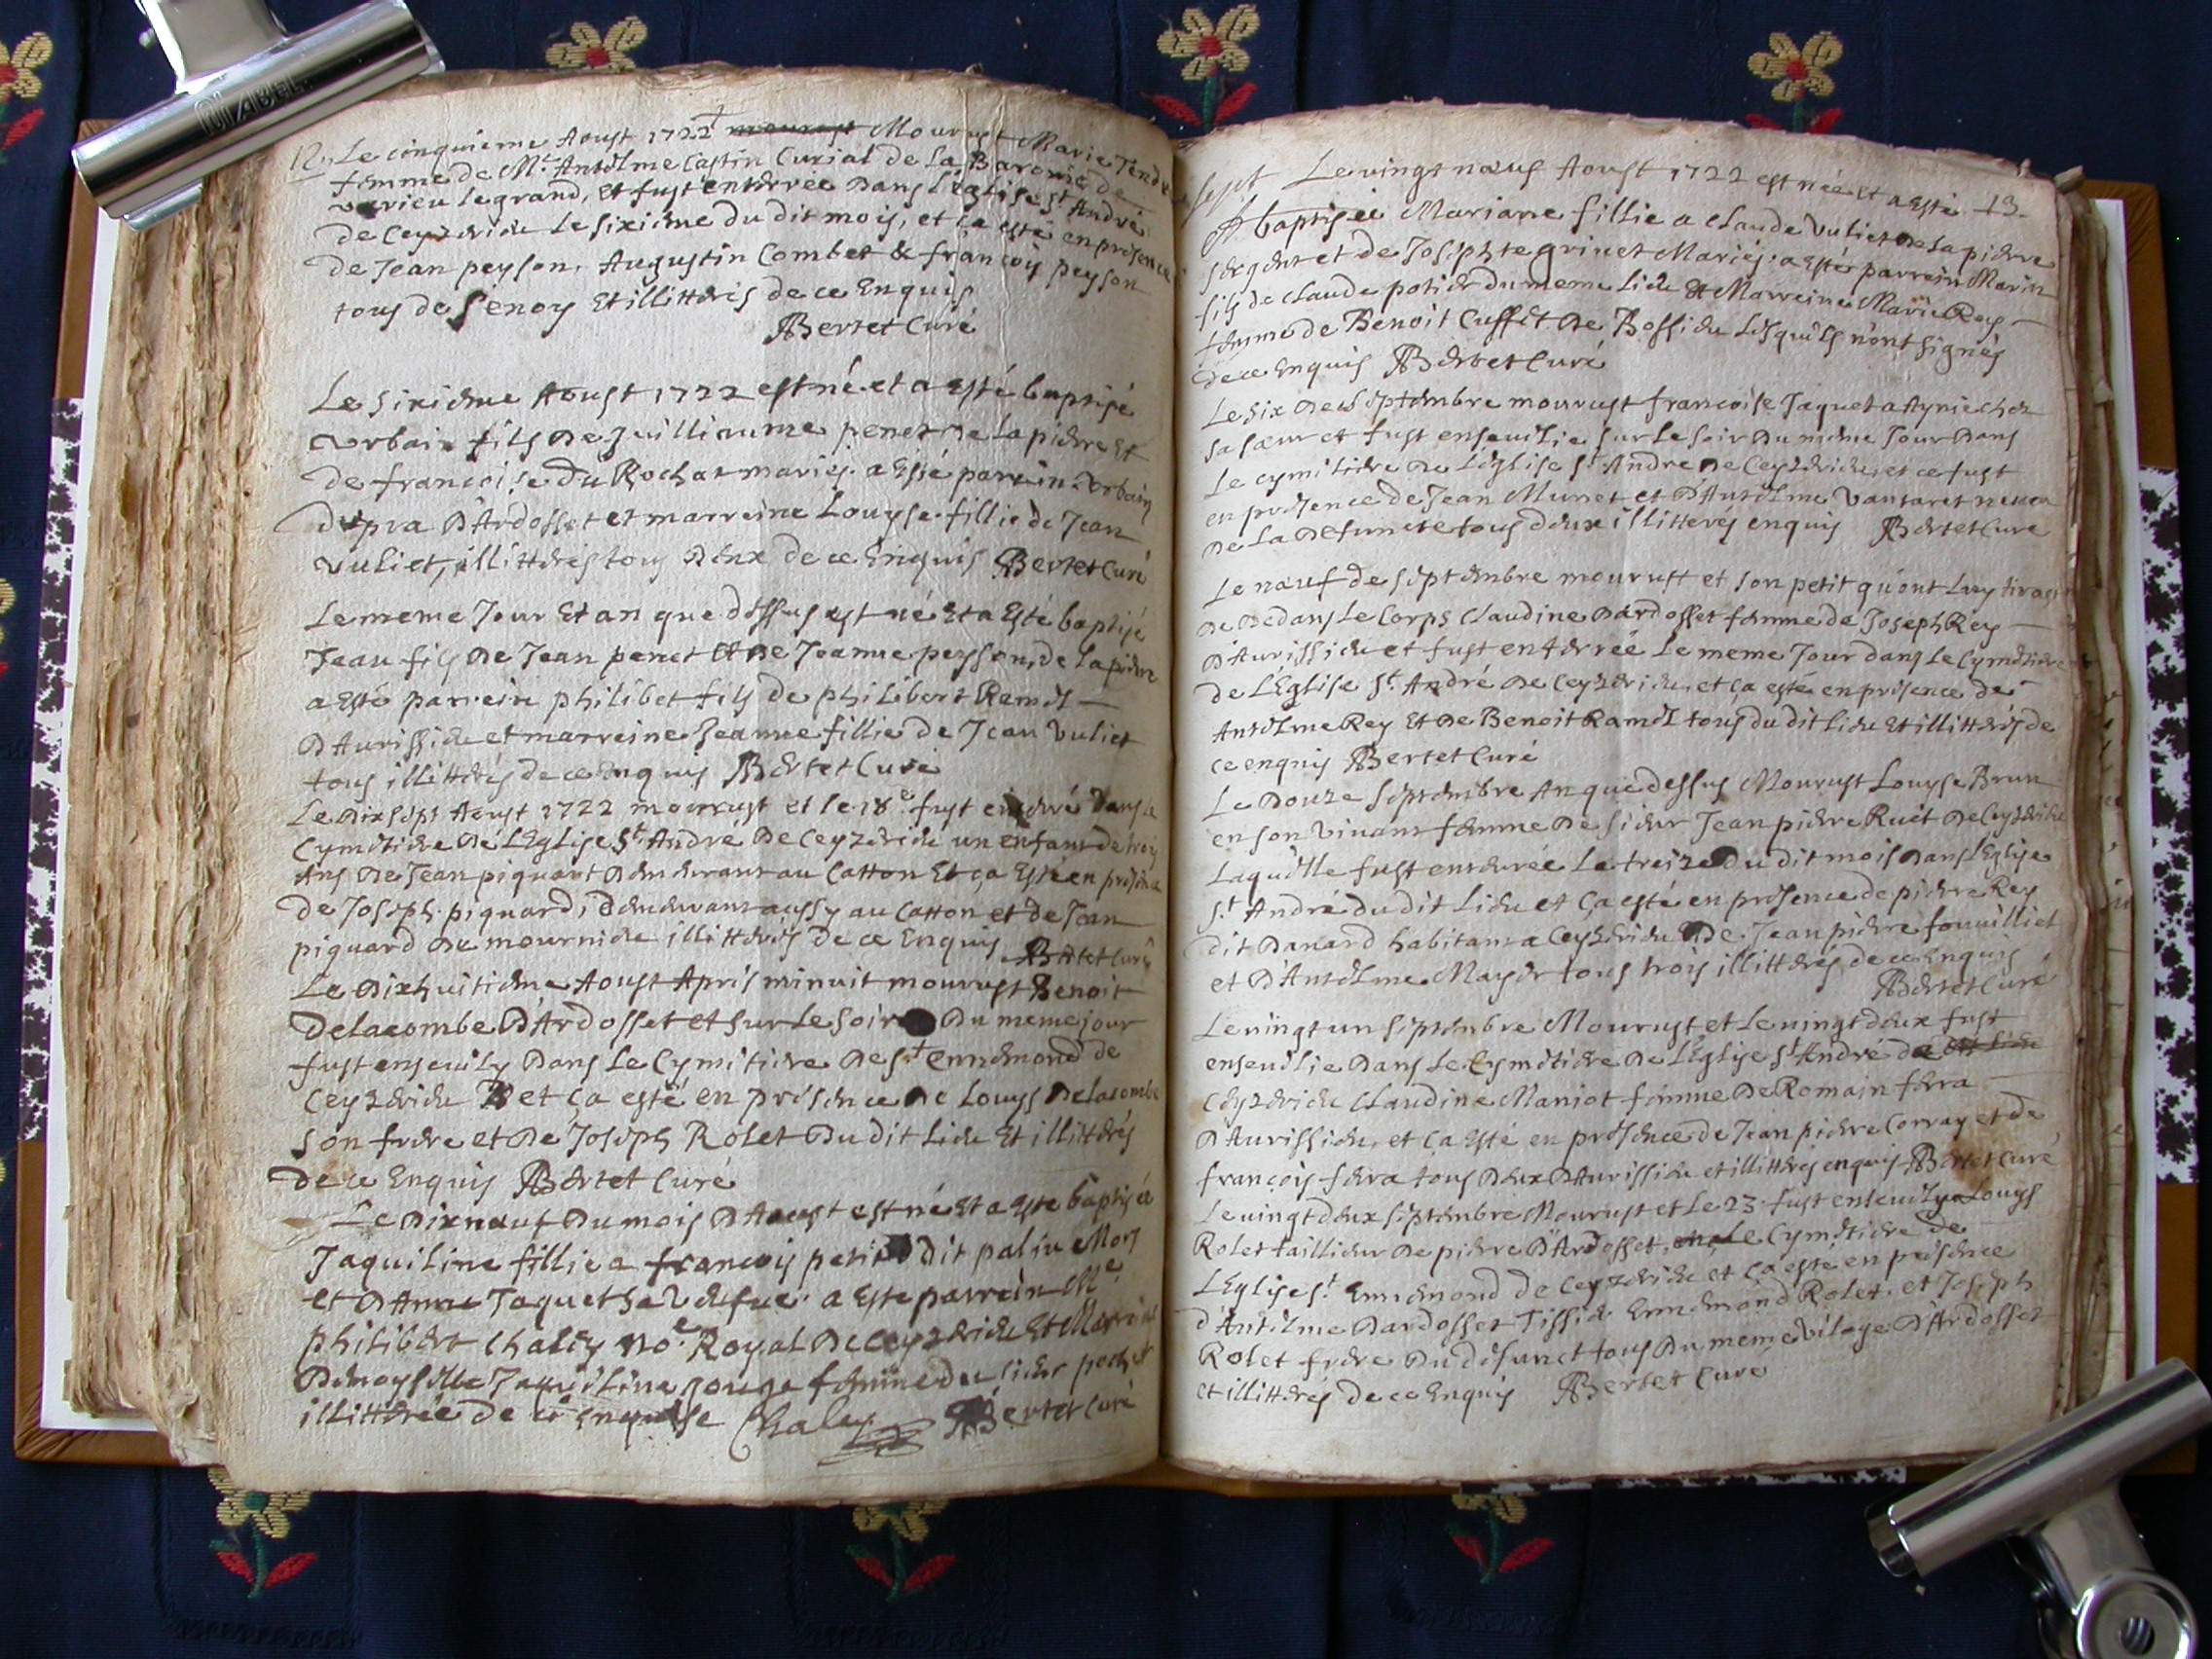 12. Le cinquieme Aoust 1722 mourust Mourust Marie Tendr
femme de Mr. Antelme Castin Curial de La Baronie de
virieu le grand, et fust enterrée dans l'église St. André
de Ceyzerieu le sixieme du dit mois, et ça esté en présence
de Jean peyson, Augustin Combet & françoy peyson
tous de Senoy et illitterés de ce Enquis
Bertet Curé
Le sixieme Aoust 1722 est né et a esté baptisé
vrbain fils de guilliaume penet de la pierre Et
de francoise du Rochat mariés. a esté parrein vrbain
dupra D'Ardosset et marreine Louyse fillie de Jean
vuliet, illitterés tous deux de ce Enquis Bertet Curé
Le meme Jour Et an que dessus est né Et a Esté baptisé
Jean fils de Jean penet et de Joanne peyson, de la pierre
a esté parrein philibet fils de philibert Ramel
D'Aurissieu et marreine Jeanne fillie de Jean vuliet
tous illitterés de ce Enquis Bertet Curé
Le dix sept Aoust 1722 mourust et le 18e. fust enterré dans le
Cymetiere de L'Eglise St. André de Ceyzerieu un enfant de trois
Ans de Jean piquart demeurant au Catton Et ça Esté en présence
de Joseph piquard, demeurant aussy au Catton et de Jean
piquard de mournieu illitterés de ce Enquis Bertet Curé
Le dixhuitieme Aoust Aprés minuit mourust Benoit
Delacombe D'Ardosset et sur le soir du meme jour
fust ensevily dans le Cymitiere de st Ennemond de
Ceyzerieu et ça esté en présence de Louys Delacombe
son frere et de Joseph Rolet du dit Lieu Et illitterés
de ce Enquis Bertet Curé
Le dixnœuf du mois D'Aoust est née Et a esté baptisée
Jaqueline fillie a francois petit dit
et D'Anne Jaquet sa a Esté parrein Me.
philibert Chaley No.e Royal de Ceyzerieu Et Marreine
Demoyselle Jaqueline gouge femme du sieur
illitterée de ce enquise Chaley Bertet Curé
sept Le vingt nœuf Aoust 1722 est née et a esté 13.
baptisée Mariane fillie a Claude Vuliet de la pierre
sergent et de Josephte grinet Mariés. a Esté parrein Marin
fils de Claude potier du meme lieu et Marreine Marie Rey
femme de Benoit Cuffet de Bossieu lesquels n'ont signés
de ce Enquis Bertet Curé
Le six de Septembre mourust francoise Jaquet a Aynie chez
sa sœur et fust ensevilie sur le soir du meme Jour dans
Le cymetiere de L'église St. Andre de Ceyzerieu, et ce fust
en présence de Jean Munet et D'Antelme Vantaret neveu
de la Defuncte tous deux illitterés enquis Bertet Curé
Le nœuf de septembre mourust et son petit qu'ont Luy tirast
de dedans le Corps Claudine Dardosset femme de Joseph Rey
D'Aurissieu et fust enterrée Le meme Jour dans le Cymetiere
de L'Eglise St. André de Ceyzerieu, et ça esté en présence de
Antelme Rey Et de Benoit Ramel tous du dit lieu Et illitterés de
ce enquis Bertet Curé
Le Douze septembre An que dessus Mourust Louyse Brun
en son vivant femme de sieur Jean pierre Ruet de Ceyzerieu
Laquelle fust enterrée Le treize du dit mois dans L'Eglise
St. André du dit Lieu et Ça esté en présence de pierre Rey
dit Danard habitant a Ceyzerieu De Jean pierre fouuilliet
et D'Antelme Mayer tous trois illitterés de ce Enquis
Bertet Curé
Le vingt un septembre Mourust et Le vingt deux fust
ensevelie dans Le Cymetiere de L'Eglise St. André de dit lieu
Ceyzerieu Claudine Maniot femme de Romain ferra
D'Aurissieu, et ça Esté en présence de Jean pierre Corray et de
françois ferra tous deux D'Aurissieu et illitterés enquis Bertet Curé
Le vingt deux septembre Mourust et Le 23. fust ensevely Louys
Rolet taillieur de pierre D'Ardosset, en le Cymetiere de
L'Eglise St. Ennemond de Ceyzerieu et ça esté en présence
d'Antelme Dardosset Tissier Ennemond Rolet et Joseph
Rolet frere du defunct tous du meme vilage D'Ardosset
et illitterés de ce Enquis Bertet Curé